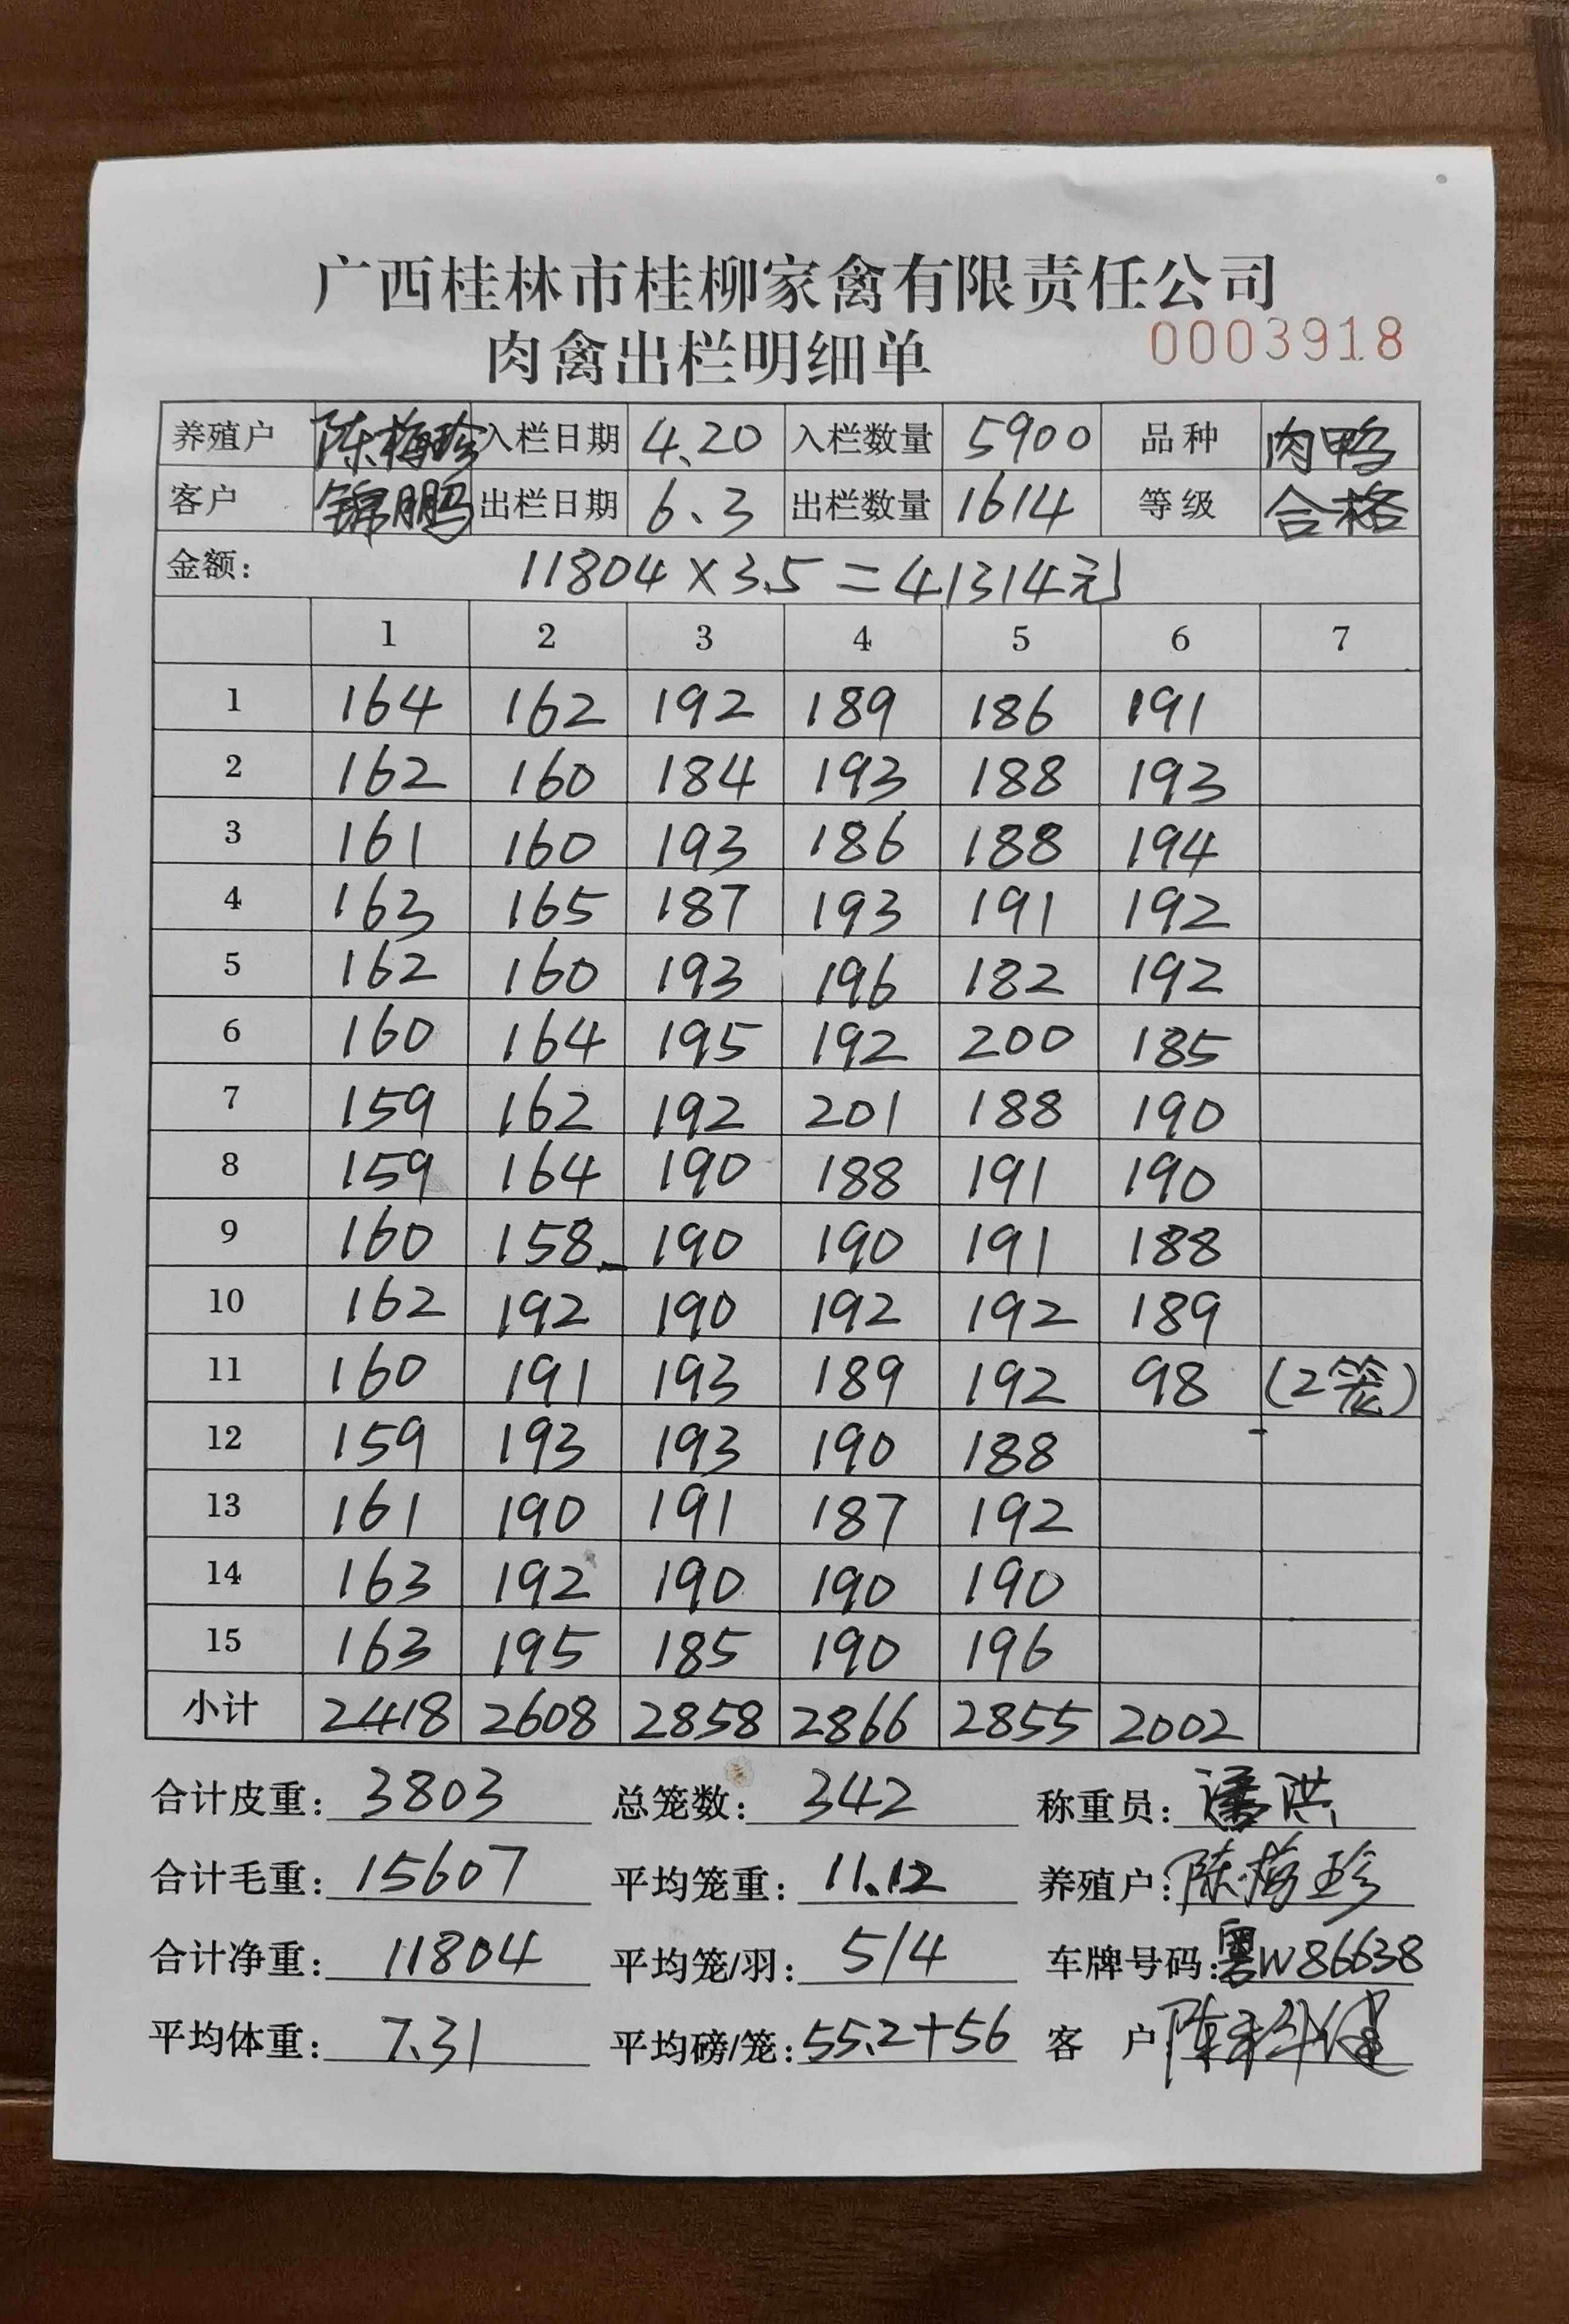 广西桂林市桂柳家禽有限责任公司
肉禽出栏明细单 0003918
养殖户 陈梅珍 入栏日期 4.20 入栏数量 5900 品种 肉鸭
客户 锦鹏 出栏日期 6.3 出栏数量 1614 等级 合格
金额: 11804×3.5=41314元
1 2 3 4 5 6 7
1 164 162 192 189 186 191
2 162 160 184 193 188 193
3 161 160 193 186 188 194
4 163 165 187 193 191 192
5 162 160 193 196 182 192
6 160 164 195 192 200 185
7 159 162 192 201 188 190
8 159 164 190 188 191 190
9 160 158 190 190 191 188
10 162 192 190 192 192 189
11 160 191 193 189 192 98 (2笼)
12 159 193 193 190 188
13 161 190 191 187 192
14 163 192 190 190 190
15 163 195 185 190 196
小计 2418 2608 2858 2866 2855 2002
合计皮重: 3803 总笼数: 342 称重员: 潘洪
合计毛重: 15607 平均笼重: 11.12 养殖户: 陈梅珍
合计净重: 11804 平均笼/羽: 5/4 车牌号码: 粤W86638
平均体重: 7.31 平均磅/笼: 55.2+56 客户 陈